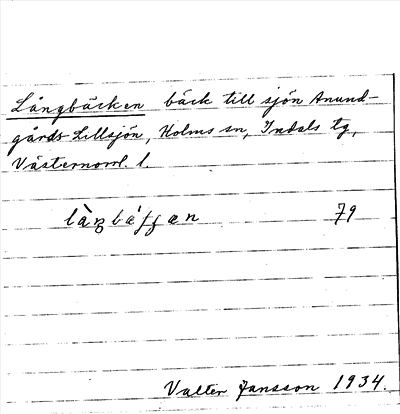 Långbäcken bäck till sjön Anund-
gårds Lillsjön, Holms sn, Indals tg,
Västernorrl. l
79
Valter Jansson 1934.